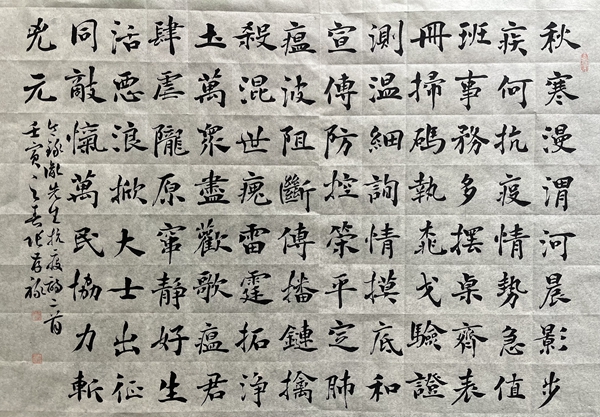 秋寒漫渭河晨影步
疾何抗疫情勢急值
班事務多擺桌齊表
冊掃碼執戈驗證
測温細詢情摸底和
宣傳防控策平定肺
瘟波阻斷傳播鏈擒
殺混世雷霆拓净
土萬衆盡歡歌瘟君
肆虐隴原寧静好生
活惡浪掀大士出征
同敵愾萬民協力斬
兇元
先生抗疫詩二首
壬寅之春張